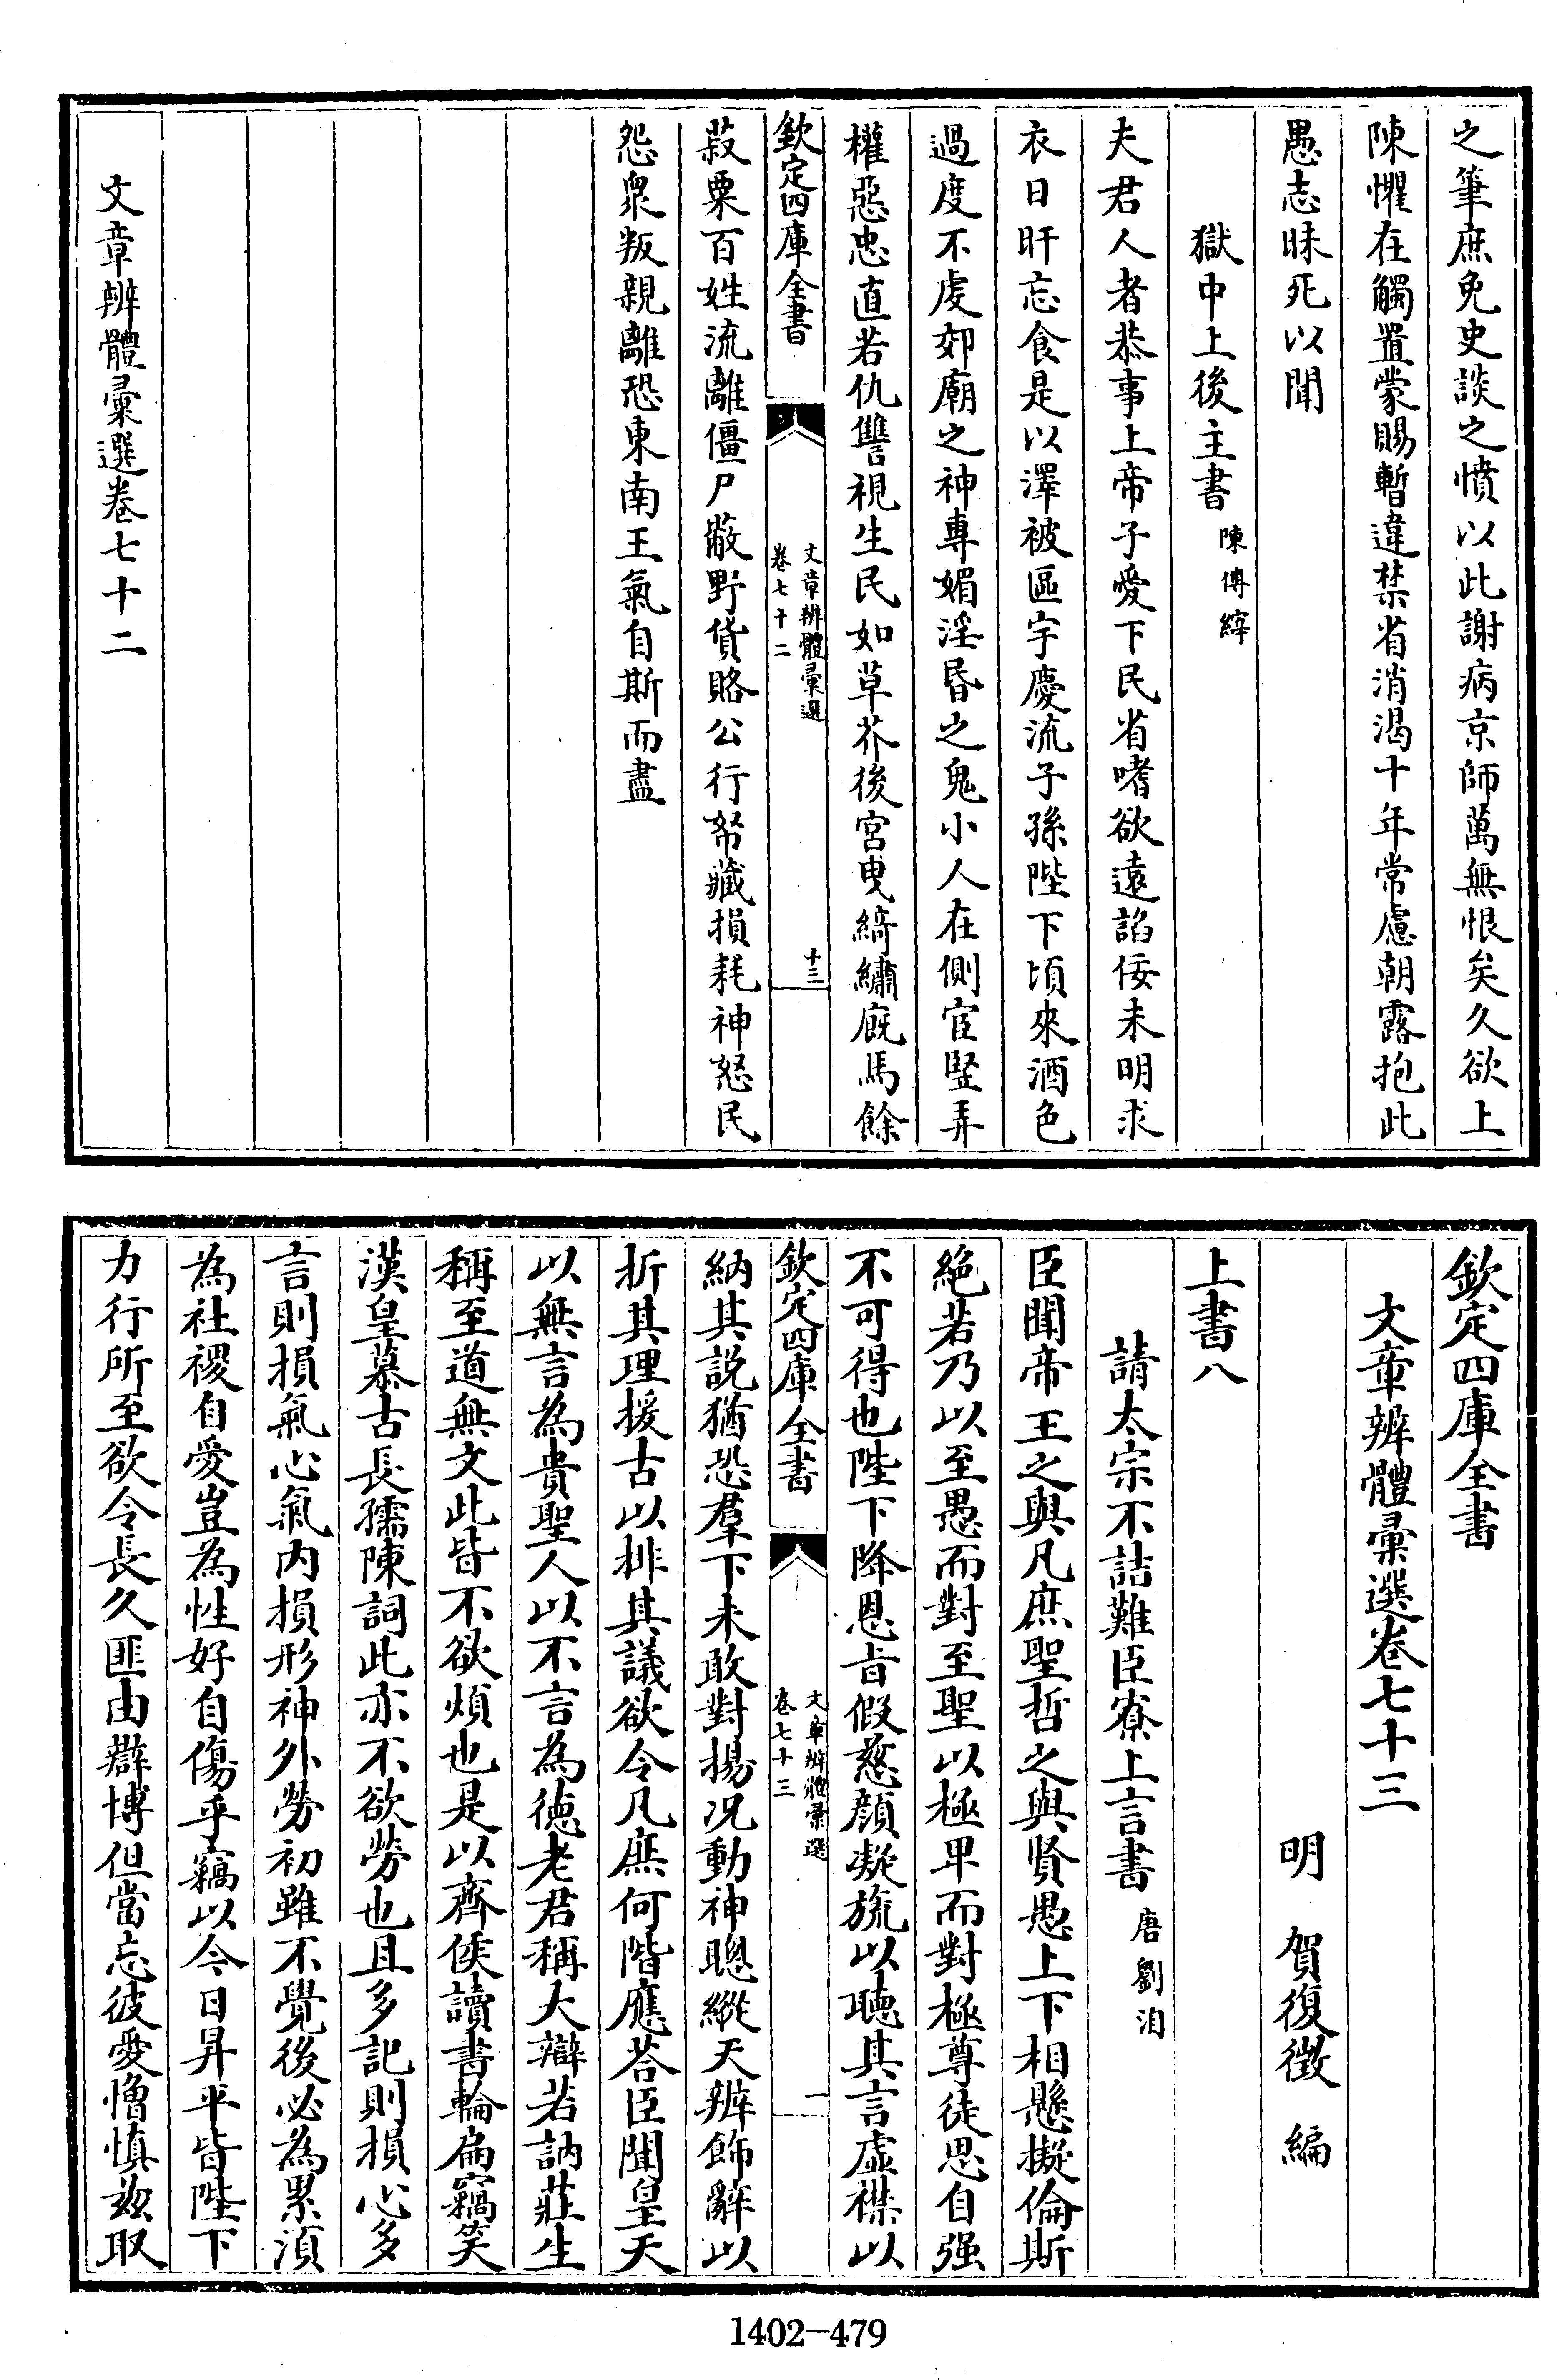 之筆庶免史談之憤以此謝病京師萬無恨矣久欲上
陳懼在觸罝蒙賜暫違禁省消渴十年常慮朝露抱此
愚志昧死以聞
獄中上後主書 陳傅縡
夫君人者恭事上帝子愛下民省嗜欲遠諂佞未明求
衣日旰忘食是以澤被區宇慶流子孫陛下頃來酒色
過度不虔郊廟之神專媚淫昬之鬼小人在側宦竪弄
權惡忠直若仇讐視生民如草芥後宮曳綺繡廐馬餘
欽定四庫全書
文章辨體彙選
卷七十二
十三
菽粟百姓流離僵尸蔽野貨賂公行帑藏損耗神怒民
怨衆叛親離恐東南王氣自斯而盡
文章辨體彙選卷七十二
欽定四庫全書
文章辨體彙選卷七十三
明 賀復徵 編
上書八
請太宗不詰難臣寮上言書 唐劉洎
臣聞帝王之與凡庶聖哲之與賢愚上下相懸擬倫斯
絕若乃以至愚而對至聖以極卑而對極尊徒思自强
不可得也陛下降恩旨假慈顔凝旒以聽其言虛襟以
欽定四庫全書
文章辨體彙選
卷七十三
一
納其說猶恐羣下未敢對揚况動神聰縱天辨飾辭以
折其理援古以排其議欲令凡庶何階應荅臣聞皇天
以無言為貴聖人以不言為德老君稱大辯若訥莊生
稱至道無文此皆不欲煩也是以齊侯讀書輪扁竊笑
漢皇慕古長孺陳詞此亦不欲勞也且多記則損心多
言則損氣心氣内損形神外勞初雖不覺後必為累湏
為社稷自愛豈為性好自傷乎竊以今日昇平皆陛下
力行所至欲令長久匪由辯博但當忘彼愛憎慎兹取
1402-479